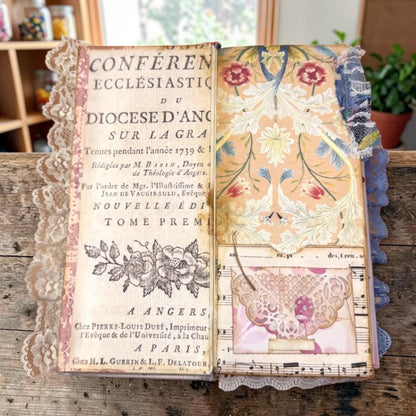 CONFÉREN
ECCLÉSIASTIQ
DU
DIOCESE D'ANG
SUR LA GRA
Tenues pendant l'année 1739 &
Rédigées par M. BABIN, Doyen
de Théologie d'Angers.
Par l'ordre de Mgr. l'Illustrissime &
JEAN DE VAUGIRAULD, Evêque
NOUVELLE ÉDI
TOME PREMI
A ANGERS,
Chez PIERRE-LOUIS DUBÉ, Imprimeur
l'Evêque & de l'Université, à la Chau
A PARIS,
Chez H. L. GUERIN & L. F. DELATOUR